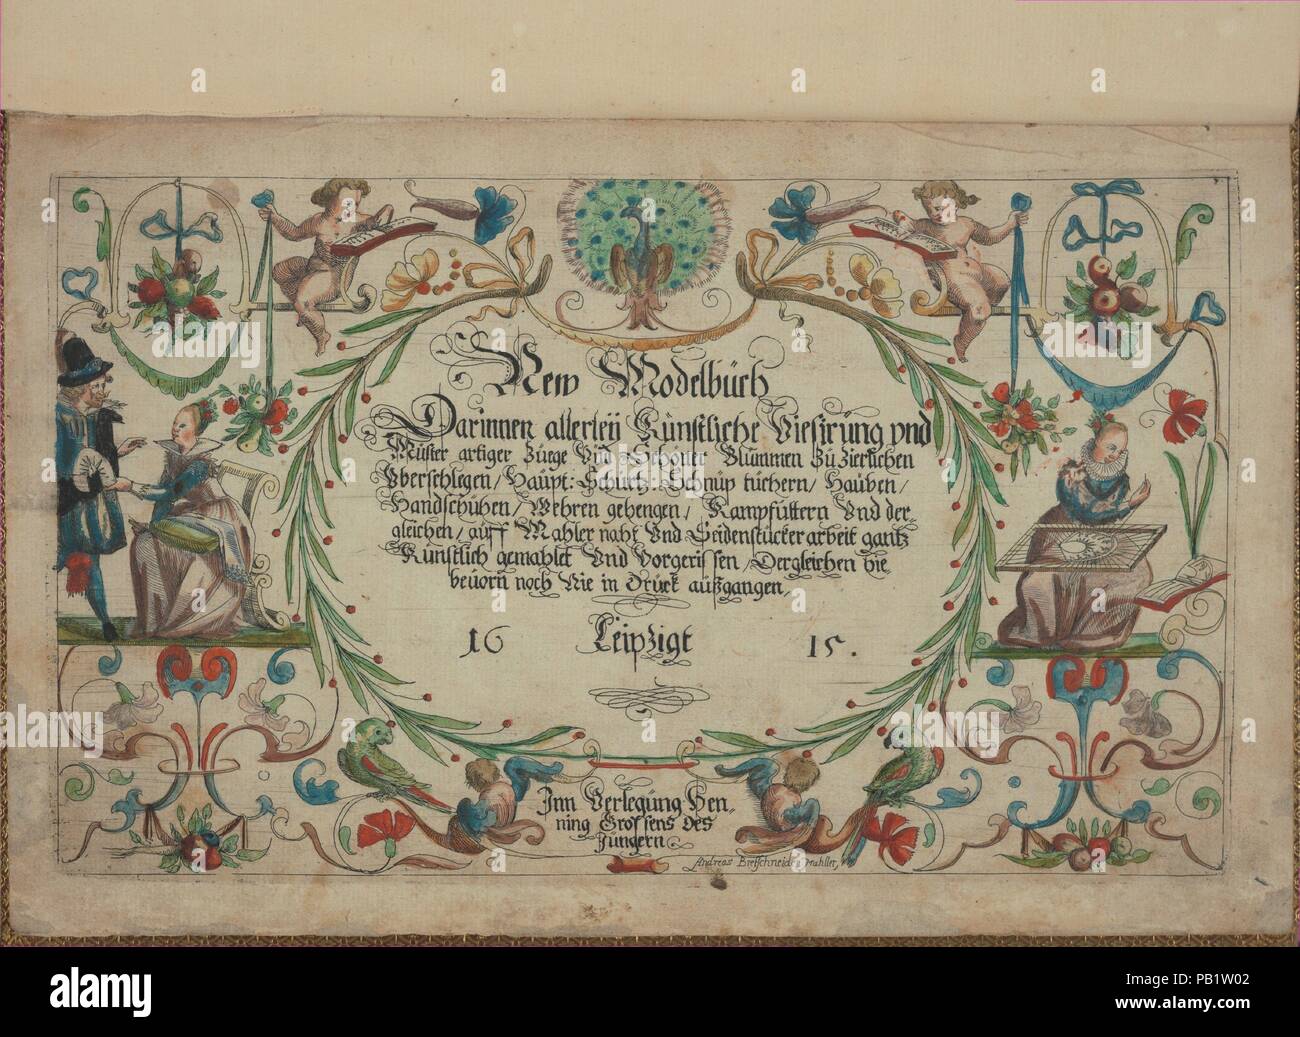 New Modelbüch
Darinnen allerleÿ Künstliche Viesirüng vnd
Müster artiger Züege Vnd Schöner Blümmen Zü Zierlichen
Vberschlegen / Haüpt: Schürtz: Schnüp tüchern / Haüben /
Handschühen / Wehren gehengen / Kampfütern Vnd der,
gleichen / aüff Mahler naht Vnd Seidenstücker arbeit gantz
Künstlich gemahlet Vnd Vorgerissen / Dergleichen hie
beuorn noch Nie in Drück außgangen,
16 Leipzigk 15.
Inn Verlegüng Hen,
ning Grossens des
Jüngern
Andreas Bretschneider Mahller,
a a a a
alamy
alamy
Image ID: PB1W02
www.alamy.com